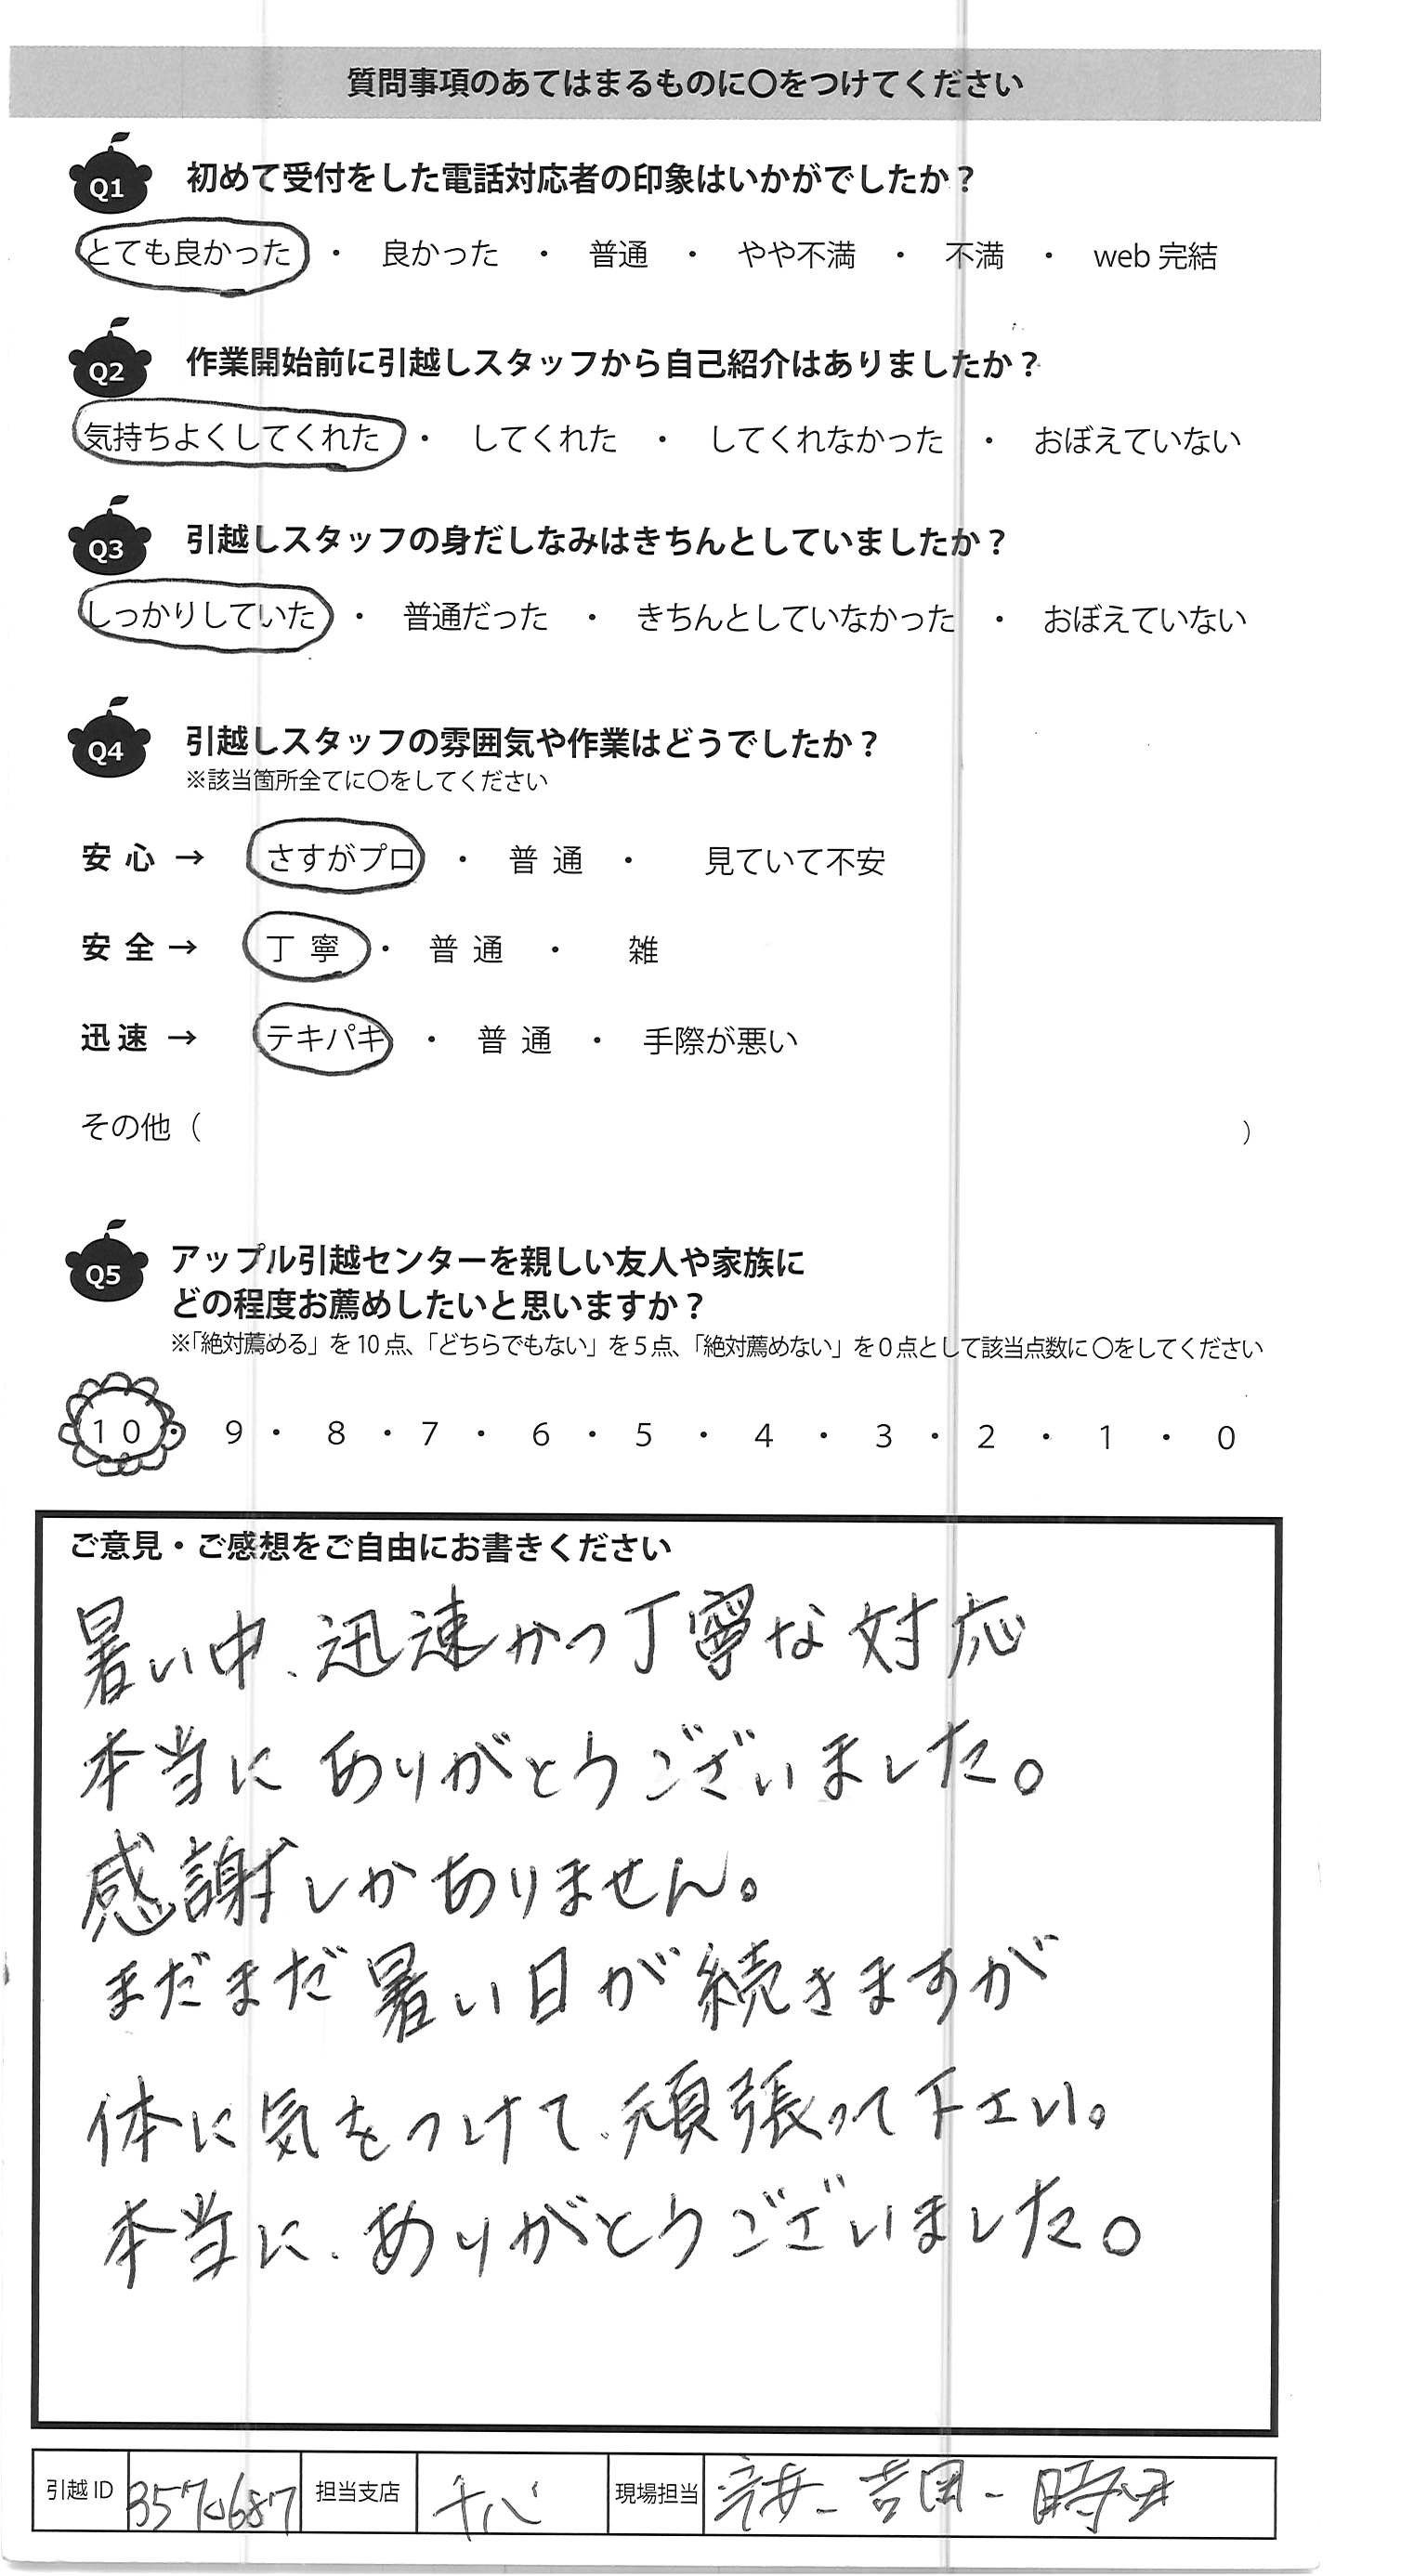 質問事項のあてはまるものに〇をつけてください
Q1 初めて受付をした電話対応者の印象はいかがでしたか？
とても良かった ・ 良かった ・ 普通 ・ やや不満 ・ 不満 ・ web 完結
Q2 作業開始前に引越しスタッフから自己紹介はありましたか？
気持ちよくしてくれた ・ してくれた ・ してくれなかった ・ おぼえていない
Q3 引越しスタッフの身だしなみはきちんとしていましたか？
しっかりしていた ・ 普通だった ・ きちんとしていなかった ・ おぼえていない
Q4 引越しスタッフの雰囲気や作業はどうでしたか？
※該当箇所全てに〇をしてください
安心 → さすがプロ ・ 普通 ・ 見ていて不安
安全 → 丁寧 ・ 普通 ・ 雑
迅速 → テキパキ ・ 普通 ・ 手際が悪い
その他（ ）
Q5 アップル引越センターを親しい友人や家族に
どの程度お薦めしたいと思いますか？
※「絶対薦める」を10点、「どちらでもない」を5点、「絶対薦めない」を0点として該当点数に〇をしてください
10 ・ 9 ・ 8 ・ 7 ・ 6 ・ 5 ・ 4 ・ 3 ・ 2 ・ 1 ・ 0
ご意見・ご感想をご自由にお書きください
暑い中、迅速かつ丁寧な対応
本当に ありがとうございました。
感謝しかありません。
まだまだ暑い日が続きますが
体に気をつけて、頑張って下さい。
本当に、ありがとうございました。
引越ID 担当支店 現場担当